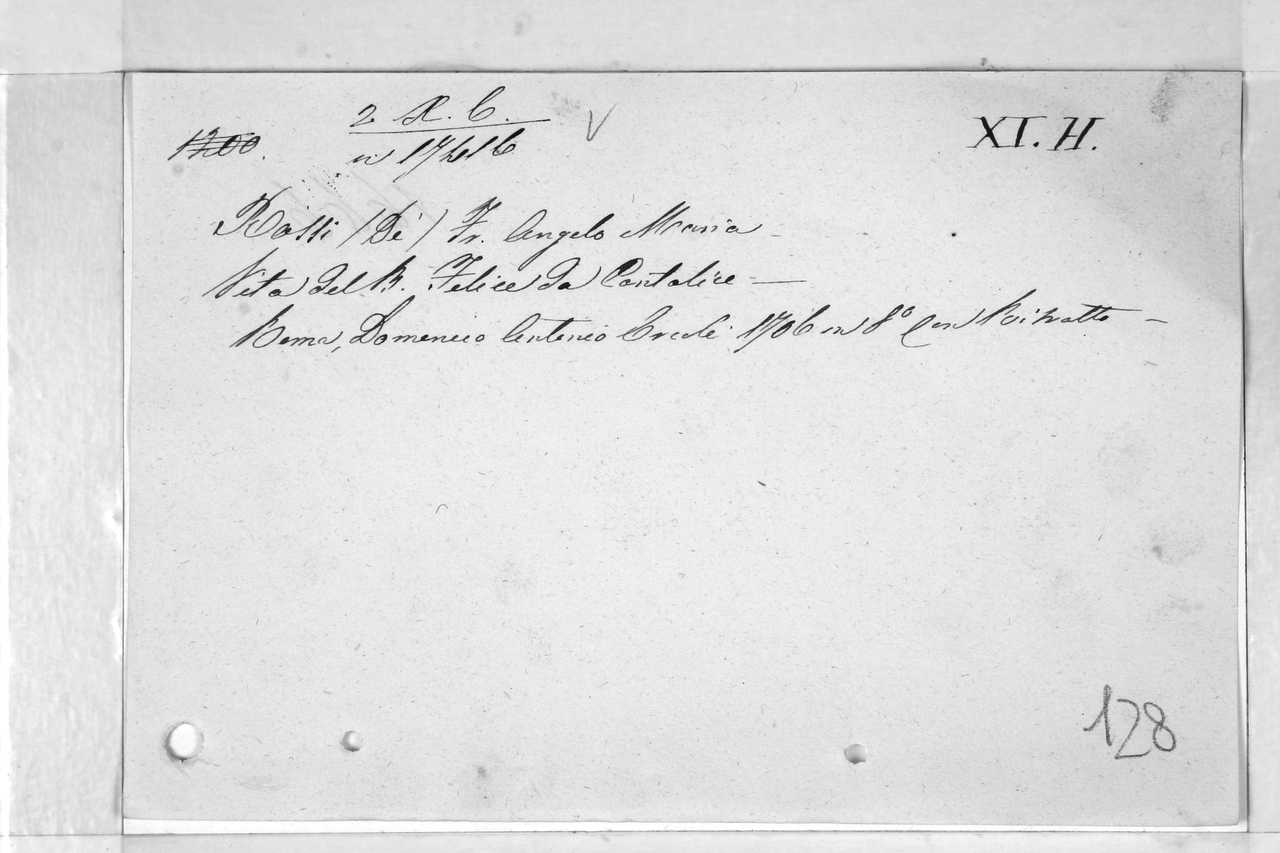 2 R. C. V
1200. n 17416 XI. H.
Rossi (De') Fr. Angelo Maria -
Vita del B. Felice da Cantalice -
Roma, Domenico Antonio Ercole 1706 in 8° Con Ritratto -
128